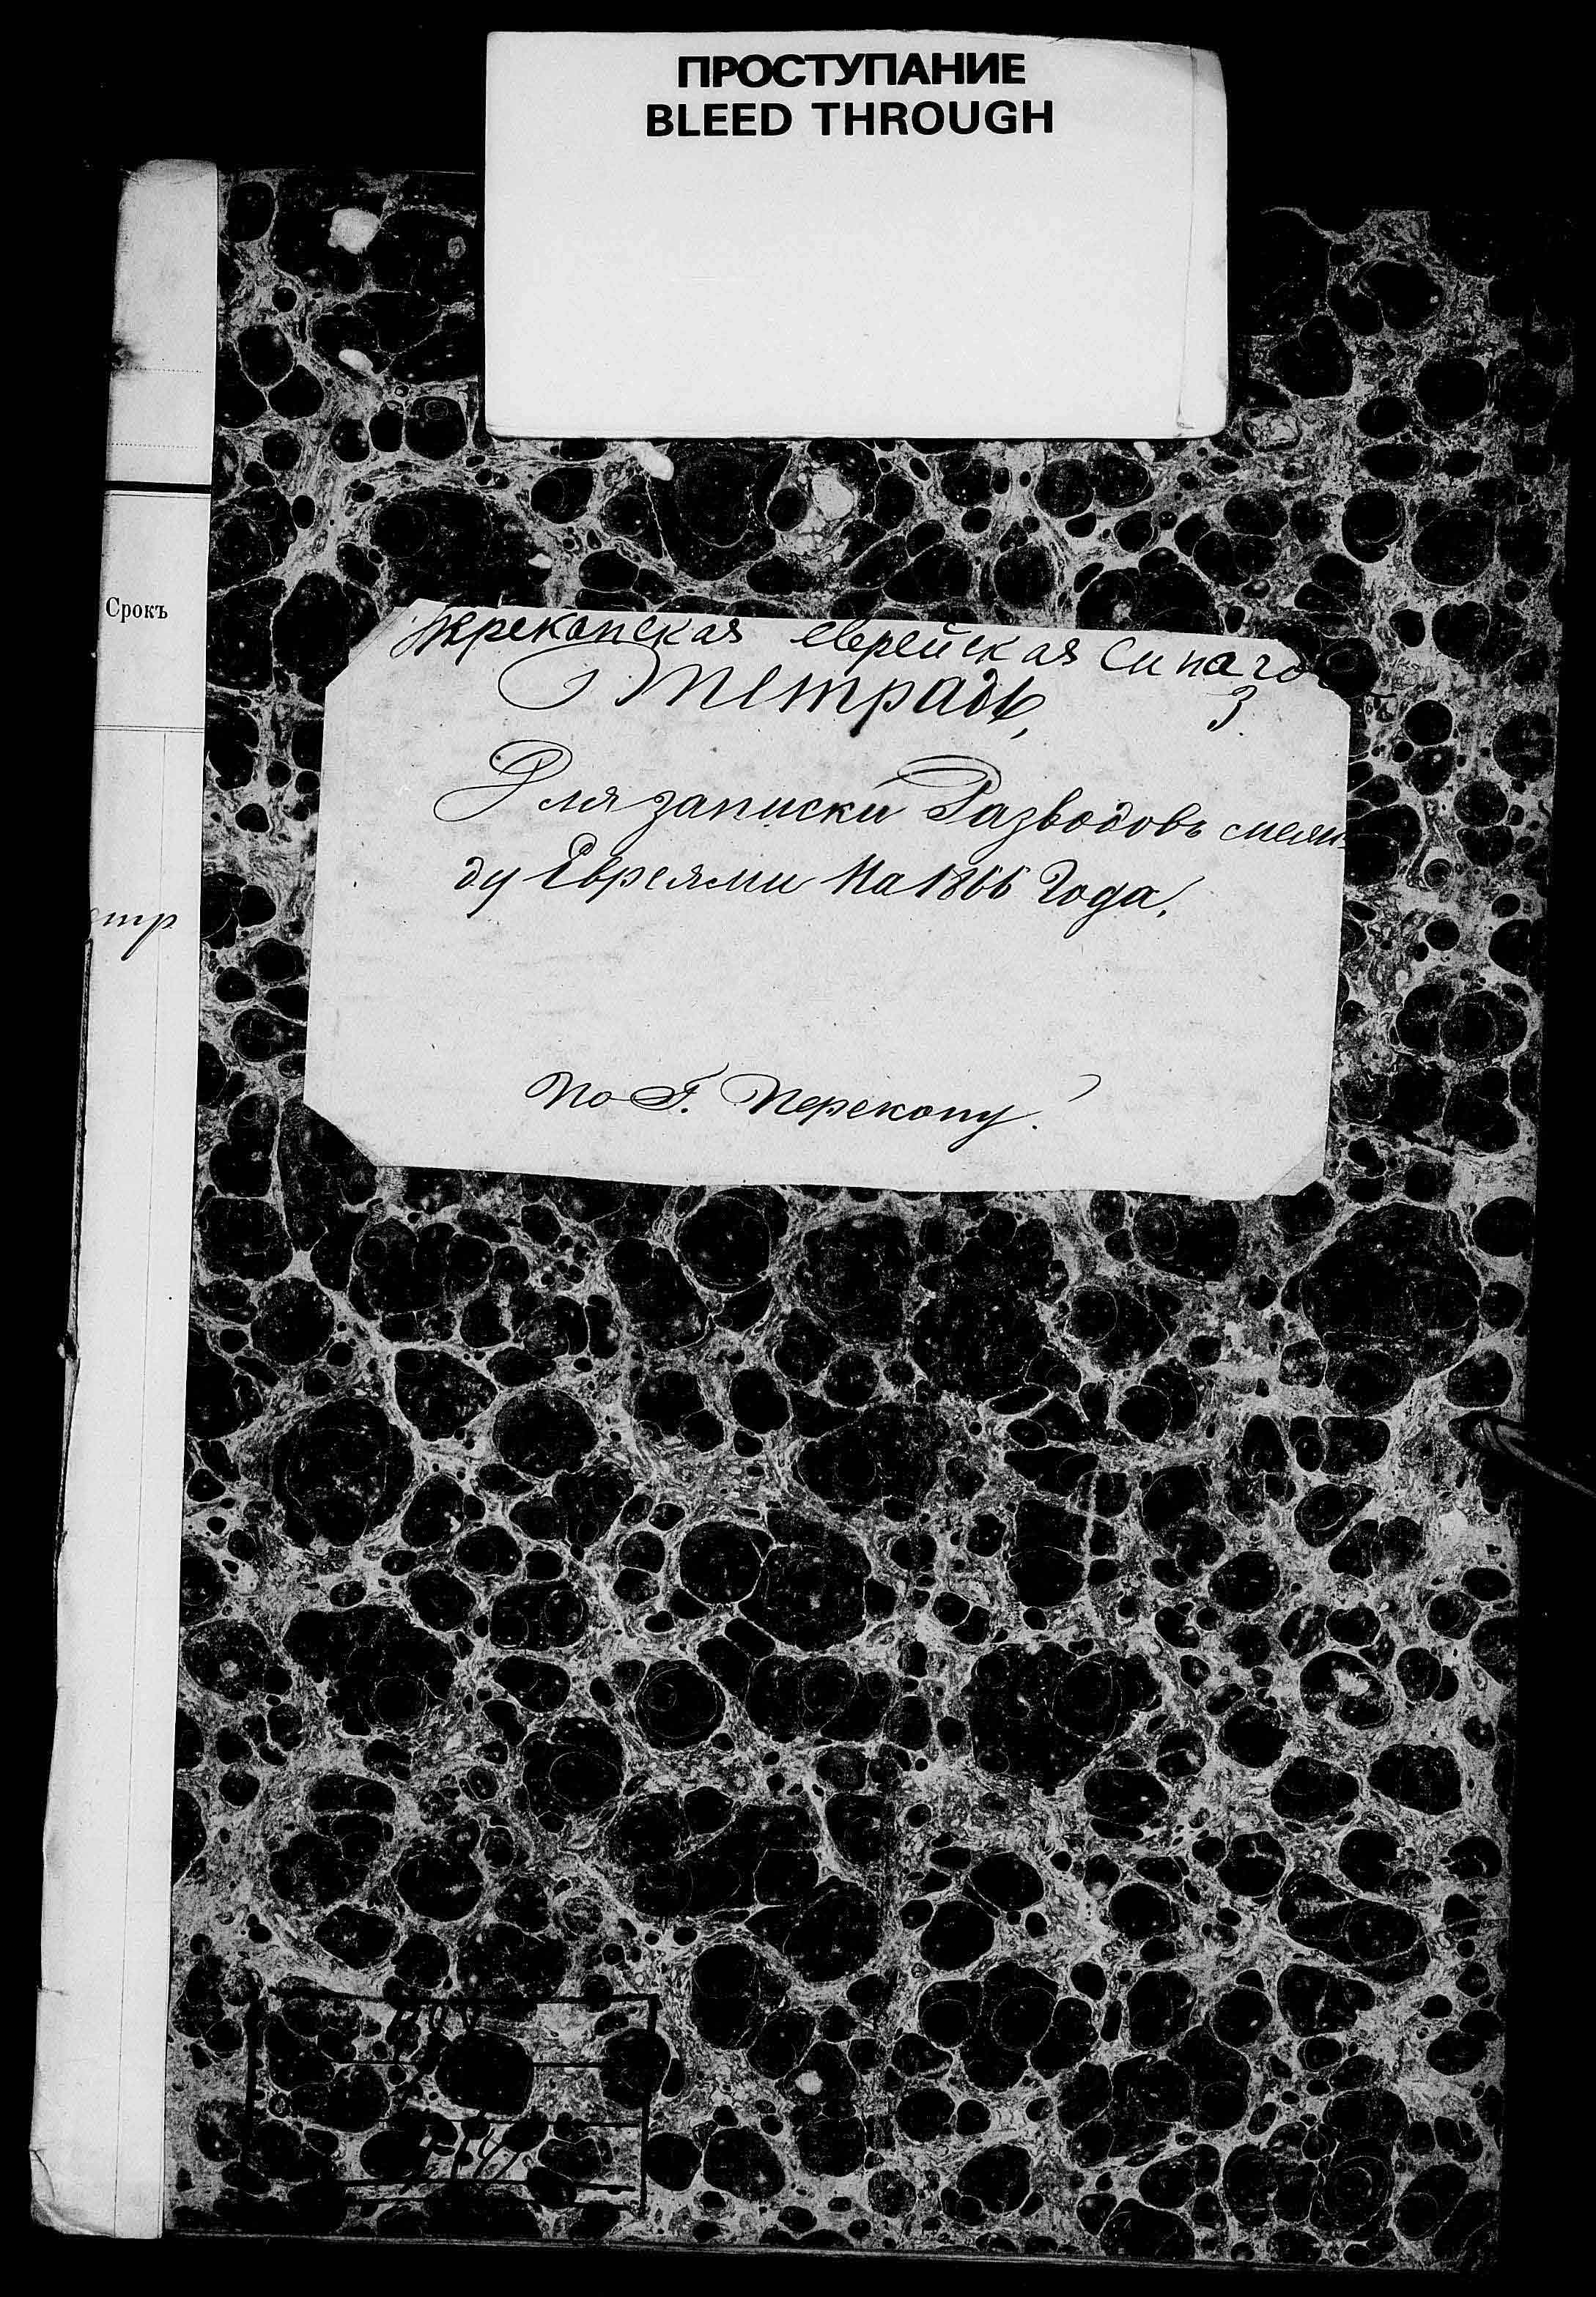 ПРОСТУПАНИЕ
BLEED THROUGH
Срокъ
Перекопская еврейская синагога
Тетрадь,
3
Для записки Разводовъ меж-
ду Евреями На 1866 Года.
По Г. Перекопу.